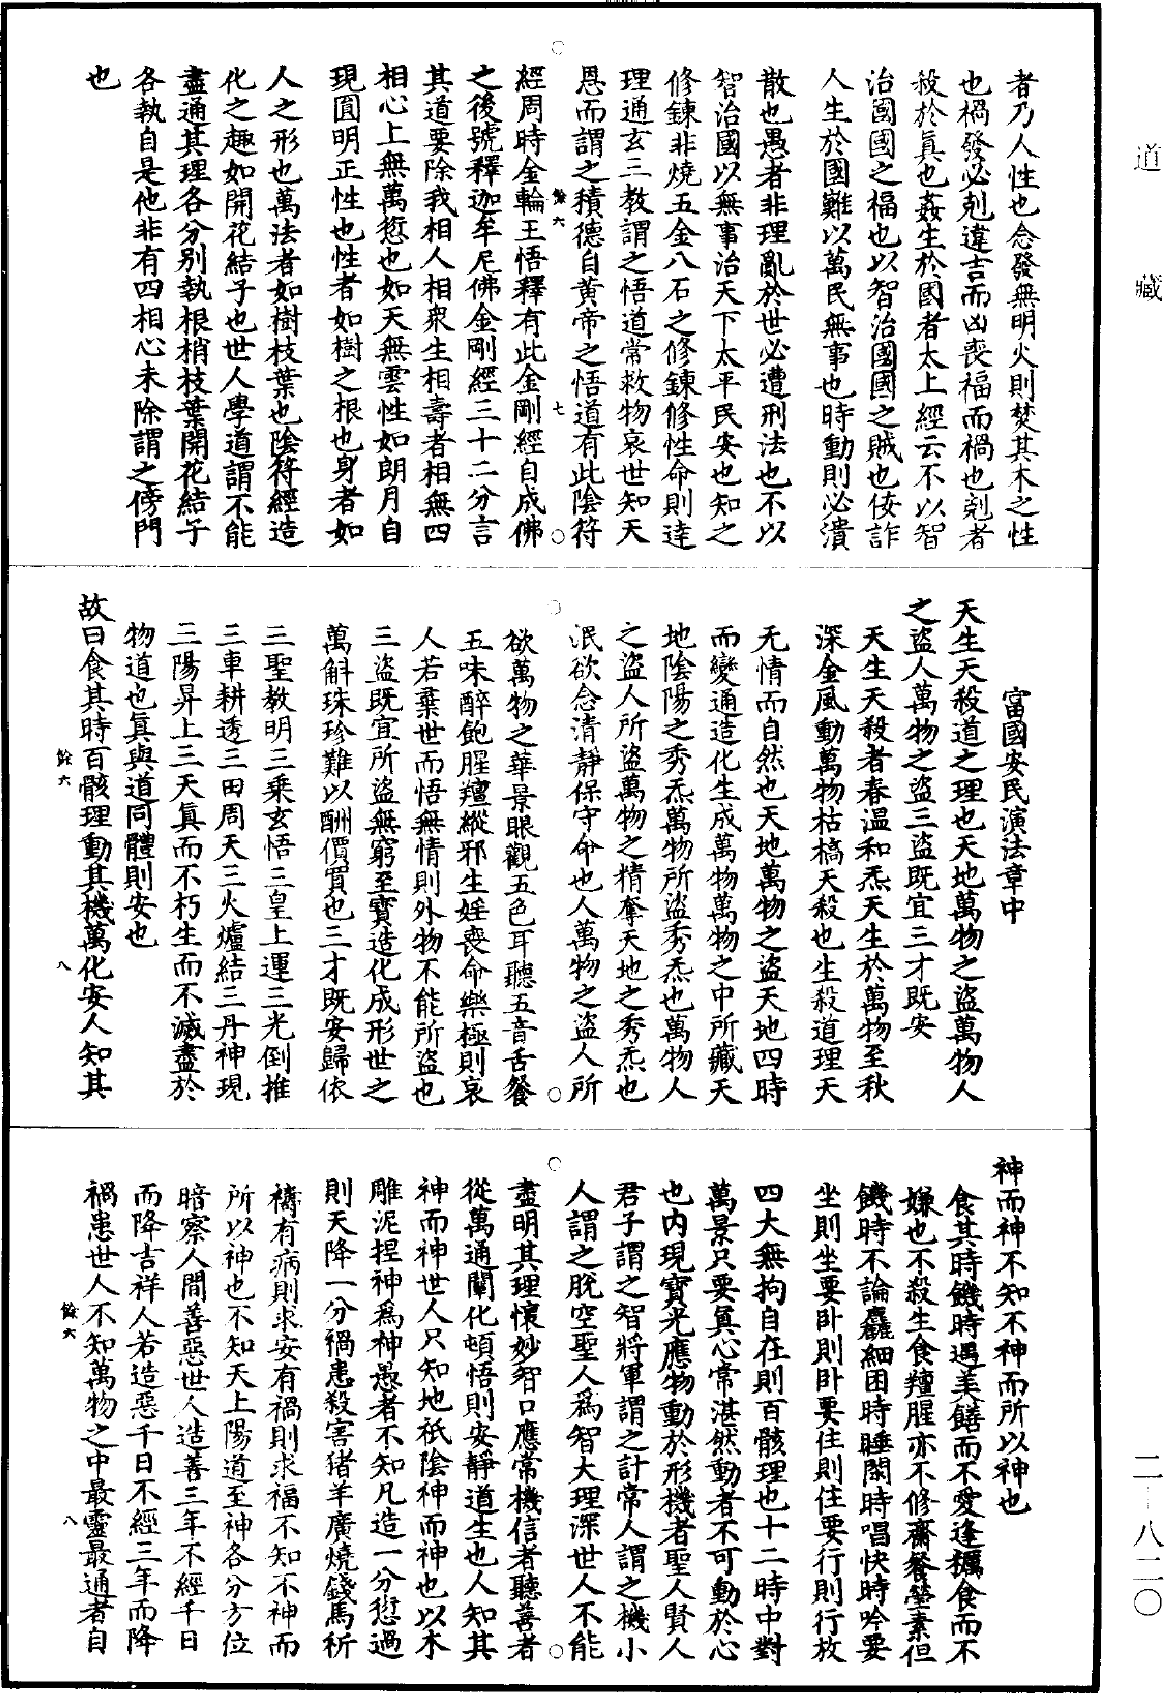 道藏
者乃人性也念發無明火則焚其木之性
也禍發必剋違吉而凶喪福而禍也剋者
殺於真也姦生於國者太上經云不以智
治國國之福也以智治國國之賊也侫詐
人生於國難以萬民無事也時動則必潰
散也愚者非理亂於世必遭刑法也不以
智治國以無事治天下太平民安也知之
修鍊非燒五金八石之修鍊修性命則達
理通玄三教謂之悟道常救物哀世知天
恩而謂之積德自黃帝之悟道有此陰符
餘六 七
經周時金輪王悟釋有此金剛經自成佛
之後號釋迦牟尼佛金剛經三十二分言
其道要除我相人相衆生相壽者相無四
相心上無萬愆也如天無雲性如朗月自
現圓明正性也性者如樹之根也身者如
人之形也萬法者如樹枝葉也陰符經造
化之趣如開花結子也世人學道謂不能
盡通其理各分別執根梢枝葉開花結子
各執自是他非有四相心未除謂之傍門
也
富國安民演法章中
天生天殺道之理也天地萬物之盜萬物人
之盜人萬物之盜三盜既宜三才既安
天生天殺者春温和炁天生於萬物至秋
深金風動萬物枯槁天殺也生殺道理天
无情而自然也天地萬物之盜天地四時
而變通造化生成萬物萬物之中所藏天
地陰陽之秀炁萬物所盜秀炁也萬物人
之盜人所盜萬物之精奪天地之秀炁也
泯欲念清靜保守命也人萬物之盜人所
欲萬物之華景眼觀五色耳聽五音舌餐
五味醉飽腥羶縱邪生婬喪命樂極則哀
人若棄世而悟無情則外物不能所盜也
三盜既宜所盜無窮至寶造化成形世之
萬斛珠珍難以酬價買也三才既安歸依
三聖教明三乘玄悟三皇上運三光倒推
三車耕透三田周天三火爐結三丹神現
三陽昇上三天真而不朽生而不滅盡於
物道也真與道同體則安也
故曰食其時百骸理動其機萬化安人知其
餘六 八
神而神不知不神而所以神也
食其時饑時遇美饍而不愛逢糲食而不
嫌也不殺生食羶腥亦不修齋餐葷素但
饑時不論麤細困時睡閑時唱快時吟要
坐則坐要卧則卧要住則住要行則行放
四大無拘自在則百骸理也十二時中對
萬景只要真心常湛然動者不可動於心
也内現寶光應物動於形機者聖人賢人
君子謂之智將軍謂之計常人謂之機小
人謂之脱空聖人爲智大理深世人不能
盡明其理懷妙智口應常機信者聽善者
從萬通闡化頓悟則安靜道生也人知其
神而神世人只知地祇陰神而神也以木
雕泥捏神爲神愚者不知凡造一分愆過
則天降一分禍患殺害猪羊廣燒錢馬祈
禱有病則求安有禍則求福不知不神而
所以神也不知天上陽道至神各分方位
暗察人間善惡世人造善三年不經千日
而降吉祥人若造惡千日不經三年而降
禍患世人不知萬物之中最靈最通者自
餘六 八
二-八二〇